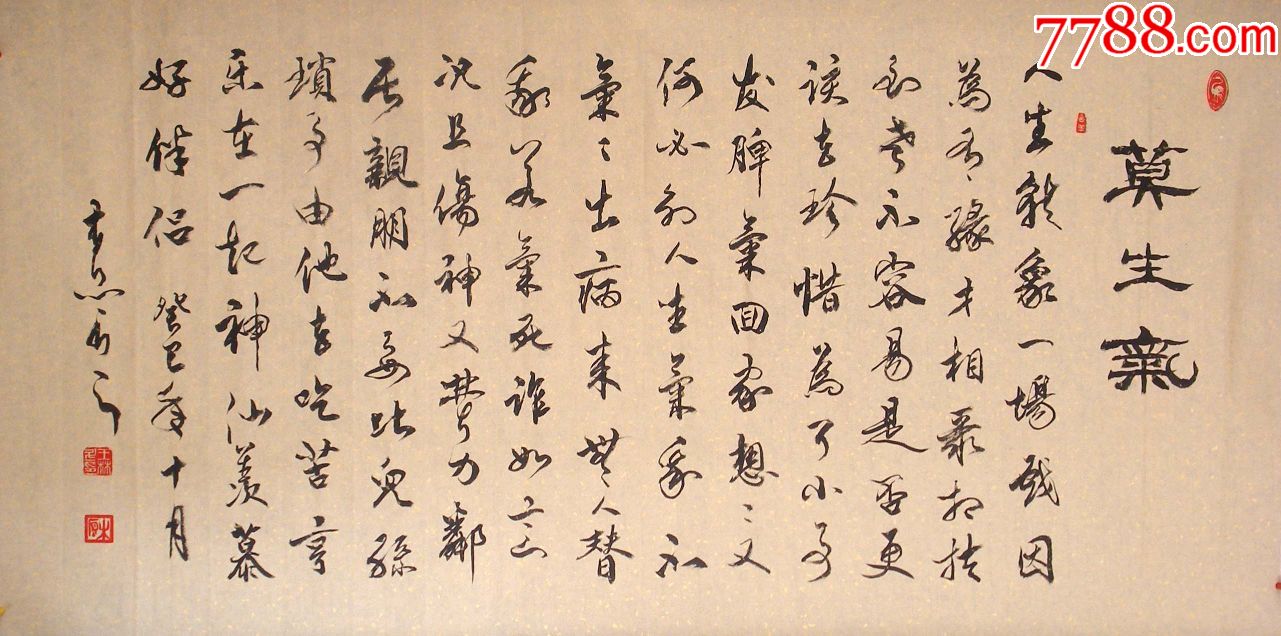 7788.com
莫生氣
人生就象一場戏因
為有〻緣才相聚相扶
到老不容易是否更
该去珍惜為了小事
发脾氣回家想〻又
何必别人生氣我不
氣〻出病来無人替
我若氣死谁如意
况且傷神又费力鄰
居親朋不要比兒孫
瑣事由他去吃苦享
乐在一起神仙羡慕
好伴侣 癸巳年十月